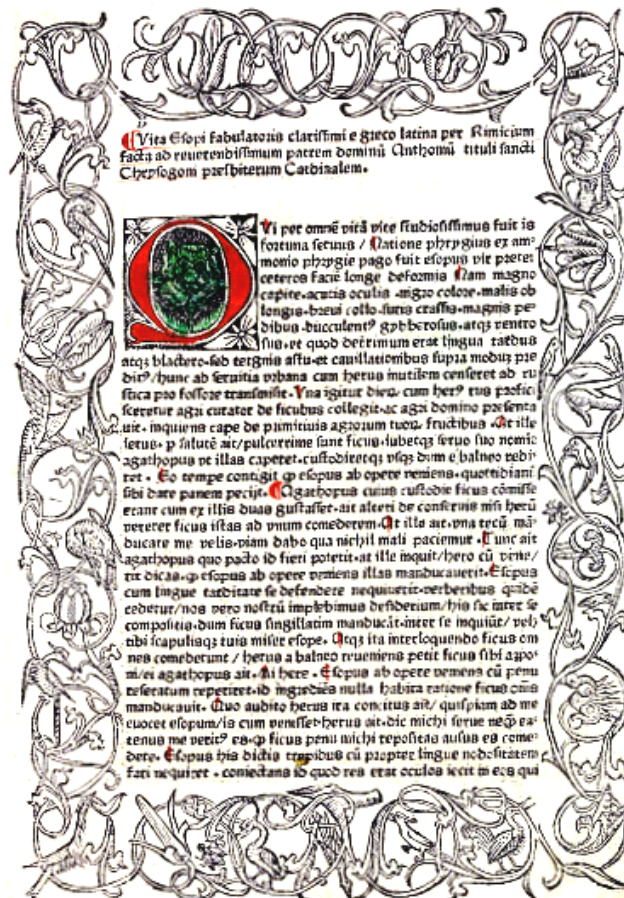 Vita Esopi fabulatoris clarissimi e greco latina per Rimicium
facta ad reuerendissimum patrem dominū Anthoniū tituli sancti
Chrysogoni presbiterum Cardinalem.
QVi per omnē vitā vite studiosissimus fuit is
fortuna seruus / Natione phrygius ex am-
monio phrygie pago fuit esopus vir preter
ceteros facie longe deformis Nam magno
capite. acutis oculis. nigro colore. malis ob
longis. breui collo. suris crassis. magnis pe
dibus. bucculentꝰ gybberosus. atqꝫ ventro
sus. et quod deterimum erat lingua tardus
atqꝫ blactero. sed tergnis astu. et cauillationibus supra modum pre
ditꝰ / hunc ab seruitia vrbana cum herus inutilem censeret ad ru
stica pro fossore transmisit. Vna igitur dierū cum herꝰ rus profici
sceretur agri curator de ficubus collegit. ac agri domino presenta
uit. inquiens cape de primitiuis agrorum tuorū fructibus. At ille
letus. p salutē ait / pulcerrime sunt ficus. iubetqꝫ seruo suo nomie
agathopus vt illas caperet. custodiretqꝫ vsqꝫ dum e balneo redi
ret. Eo tempe contigit ꝙ esopus ab opere veniens. quottidianū
sibi dare panem petijt. Agathopus cuius custodie ficus cōmisse
erant cum ex illis duas gustasset. ait alteri de conseruis nisi herū
vererer ficus istas ad vnum comederem. At ille ait. vna tecū mā
ducare me velis. viam dabo qua nichil mali paciemur. Tunc ait
agathopus quo pacto id fieri poterit. at ille inquit / hero cū vene /
rit dicas. ꝙ esopus ab opere veniens illas manducauerit. Esopus
cum lingue tarditate se defendere nequiuerit. verberibus quidē
cedetur / nos vero nostrū implebimus desiderium / his sic inter se
compositis. dum ficus singillatim manducāt. inter se inquiūt / veh
tibi scapulisqꝫ tuis miser esope. Atqꝫ ita interloquendo ficus om
nes comederunt / herus a balneo reueniens petit ficus sibi appo
ni / ei agathopus ait. Mi here. Esopus ab opere veniens cū penu
reseratum reperiret. id ingrediēs nulla habita ratione ficus oīnis
manducauit. Quo audito herus ira concitus ait / quispiam ad me
euocet esopum / is cum venisset. herus ait. dic michi serue neqꝫ ea-
tenus me veritꝰ es. ꝙ ficus penu michi repositas ausus es come
dere. Esopus his dictis trepidus cū propter lingue nodositatem
fari nequiret. coniectans id quod res erat oculos iecit in eos qui